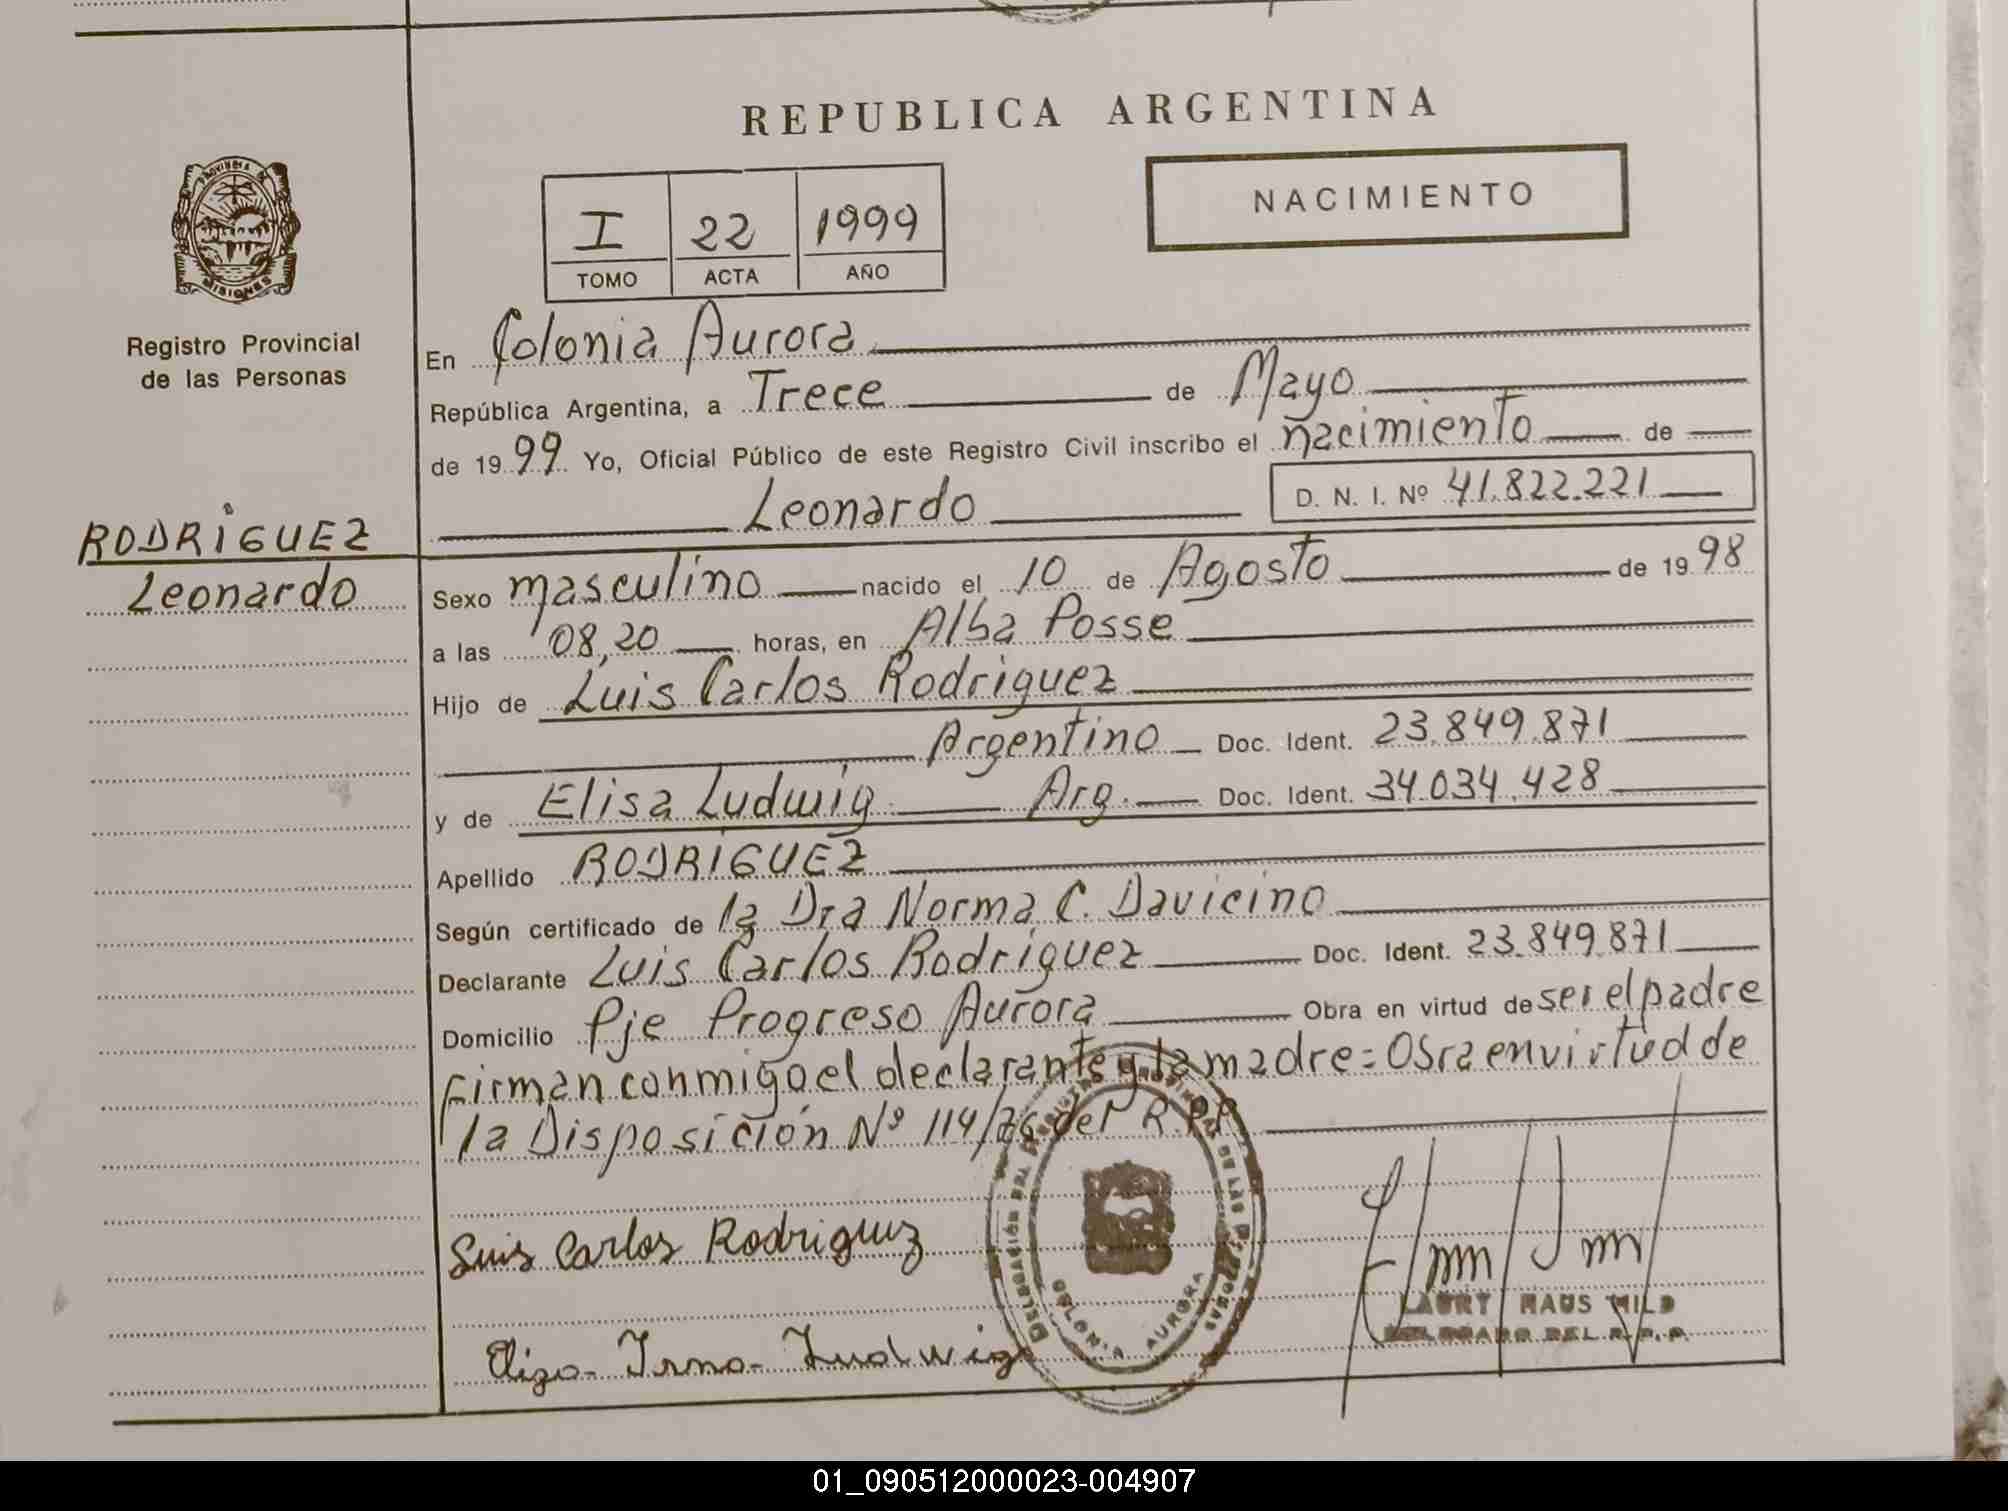 REPUBLICA ARGENTINA
PROVINCIA DE
MISIONES
Registro Provincial
de las Personas
I 22 1999
TOMO ACTA AÑO
NACIMIENTO
En Colonia Aurora
República Argentina, a Trece de Mayo
de 1999 Yo, Oficial Público de este Registro Civil inscribo el nacimiento de
Leonardo D. N. I. Nº 41.822.221
RODRIGUEZ
Leonardo
Sexo masculino nacido el 10 de Agosto de 1998
a las 08,20 horas, en Alba Posse
Hijo de Luis Carlos Rodriguez
Argentino Doc. Ident. 23.849.871
y de Elisa Ludwig Arg. Doc. Ident. 34.034.428
Apellido RODRIGUEZ
Según certificado de la Dra Norma C. Davicino
Declarante Luis Carlos Rodriguez Doc. Ident. 23.849.871
Domicilio Pje Progreso Aurora Obra en virtud de ser el padre
Firman conmigo el declarante y la madre = Osra en virtud de
la Disposición Nº 114/76 del R.P.P.
Luis Carlos Rodriguez
Irma Ludwig
DELEGACIÓN DEL REGISTRO PROVINCIAL DE LAS PERSONAS
COLONIA AURORA
LAURY HAUS WILD
DELEGADO DEL R.P.P.
01_090512000023-004907